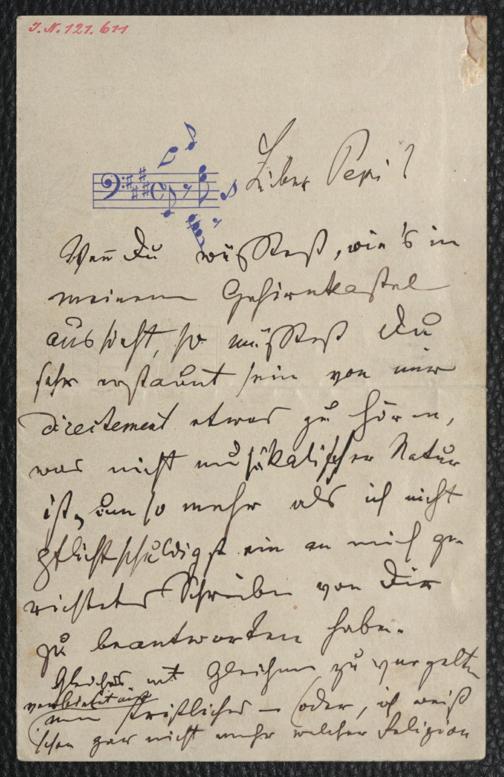 J.N. 121.611
Lieber Pepi!
Wenn Du wüßtest, wie's in
meinem Gehirnkastel
aussieht, so müßtest Du
sehr erstaunt sein von mir
directement etwas zu hören,
was nicht musikalischer Natur
ist, um so mehr als ich nicht
pflichtschuldigst ein an mich ge-
richtetes Schreiben von Dir
zu beantworten habe.
Gleiches mit Gleichem zu vergelten
christliches – (oder, ich weiß
schon gar nicht mehr welcher Religion